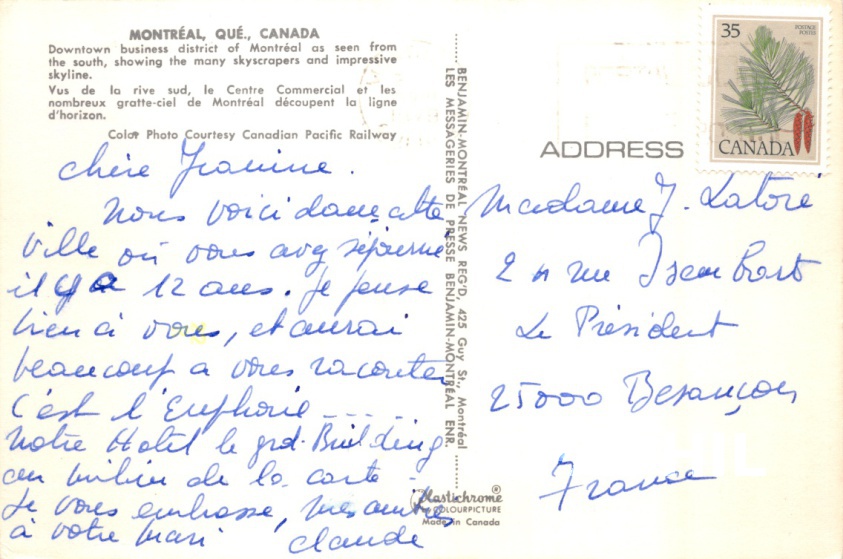 MONTRÉAL, QUÉ., CANADA
Downtown business district of Montréal as seen from
the south, showing the many skyscrapers and impressive
skyline.
Vus de la rive sud, le Centre Commercial et les
nombreux gratte-ciel de Montréal découpent la ligne
d'horizon.
Color Photo Courtesy Canadian Pacific Railway
chère Jeanine.
Nous voici dans cette
ville où vous avez séjourné
il y a 12 ans. Je pense
bien à vous, et aurai
beaucoup a vous raconter
C'est l'Euphorie ....
Notre Hotel le grd. Building
au milieu de la carte -
Je vous embrasse, mes amitiés
à votre mari claude
BENJAMIN-MONTRÉAL NEWS REG'D, 425 Guy St., Montréal
LES MESSAGERIES DE PRESSE BENJAMIN-MONTRÉAL ENR.
Plastichrome®
COLOURPICTURE
Made in Canada
35
POSTAGE
POSTES
CANADA
ADDRESS
Madame J. Latoré
2 rue Isenbart
Le Président
25000 Besançon
France